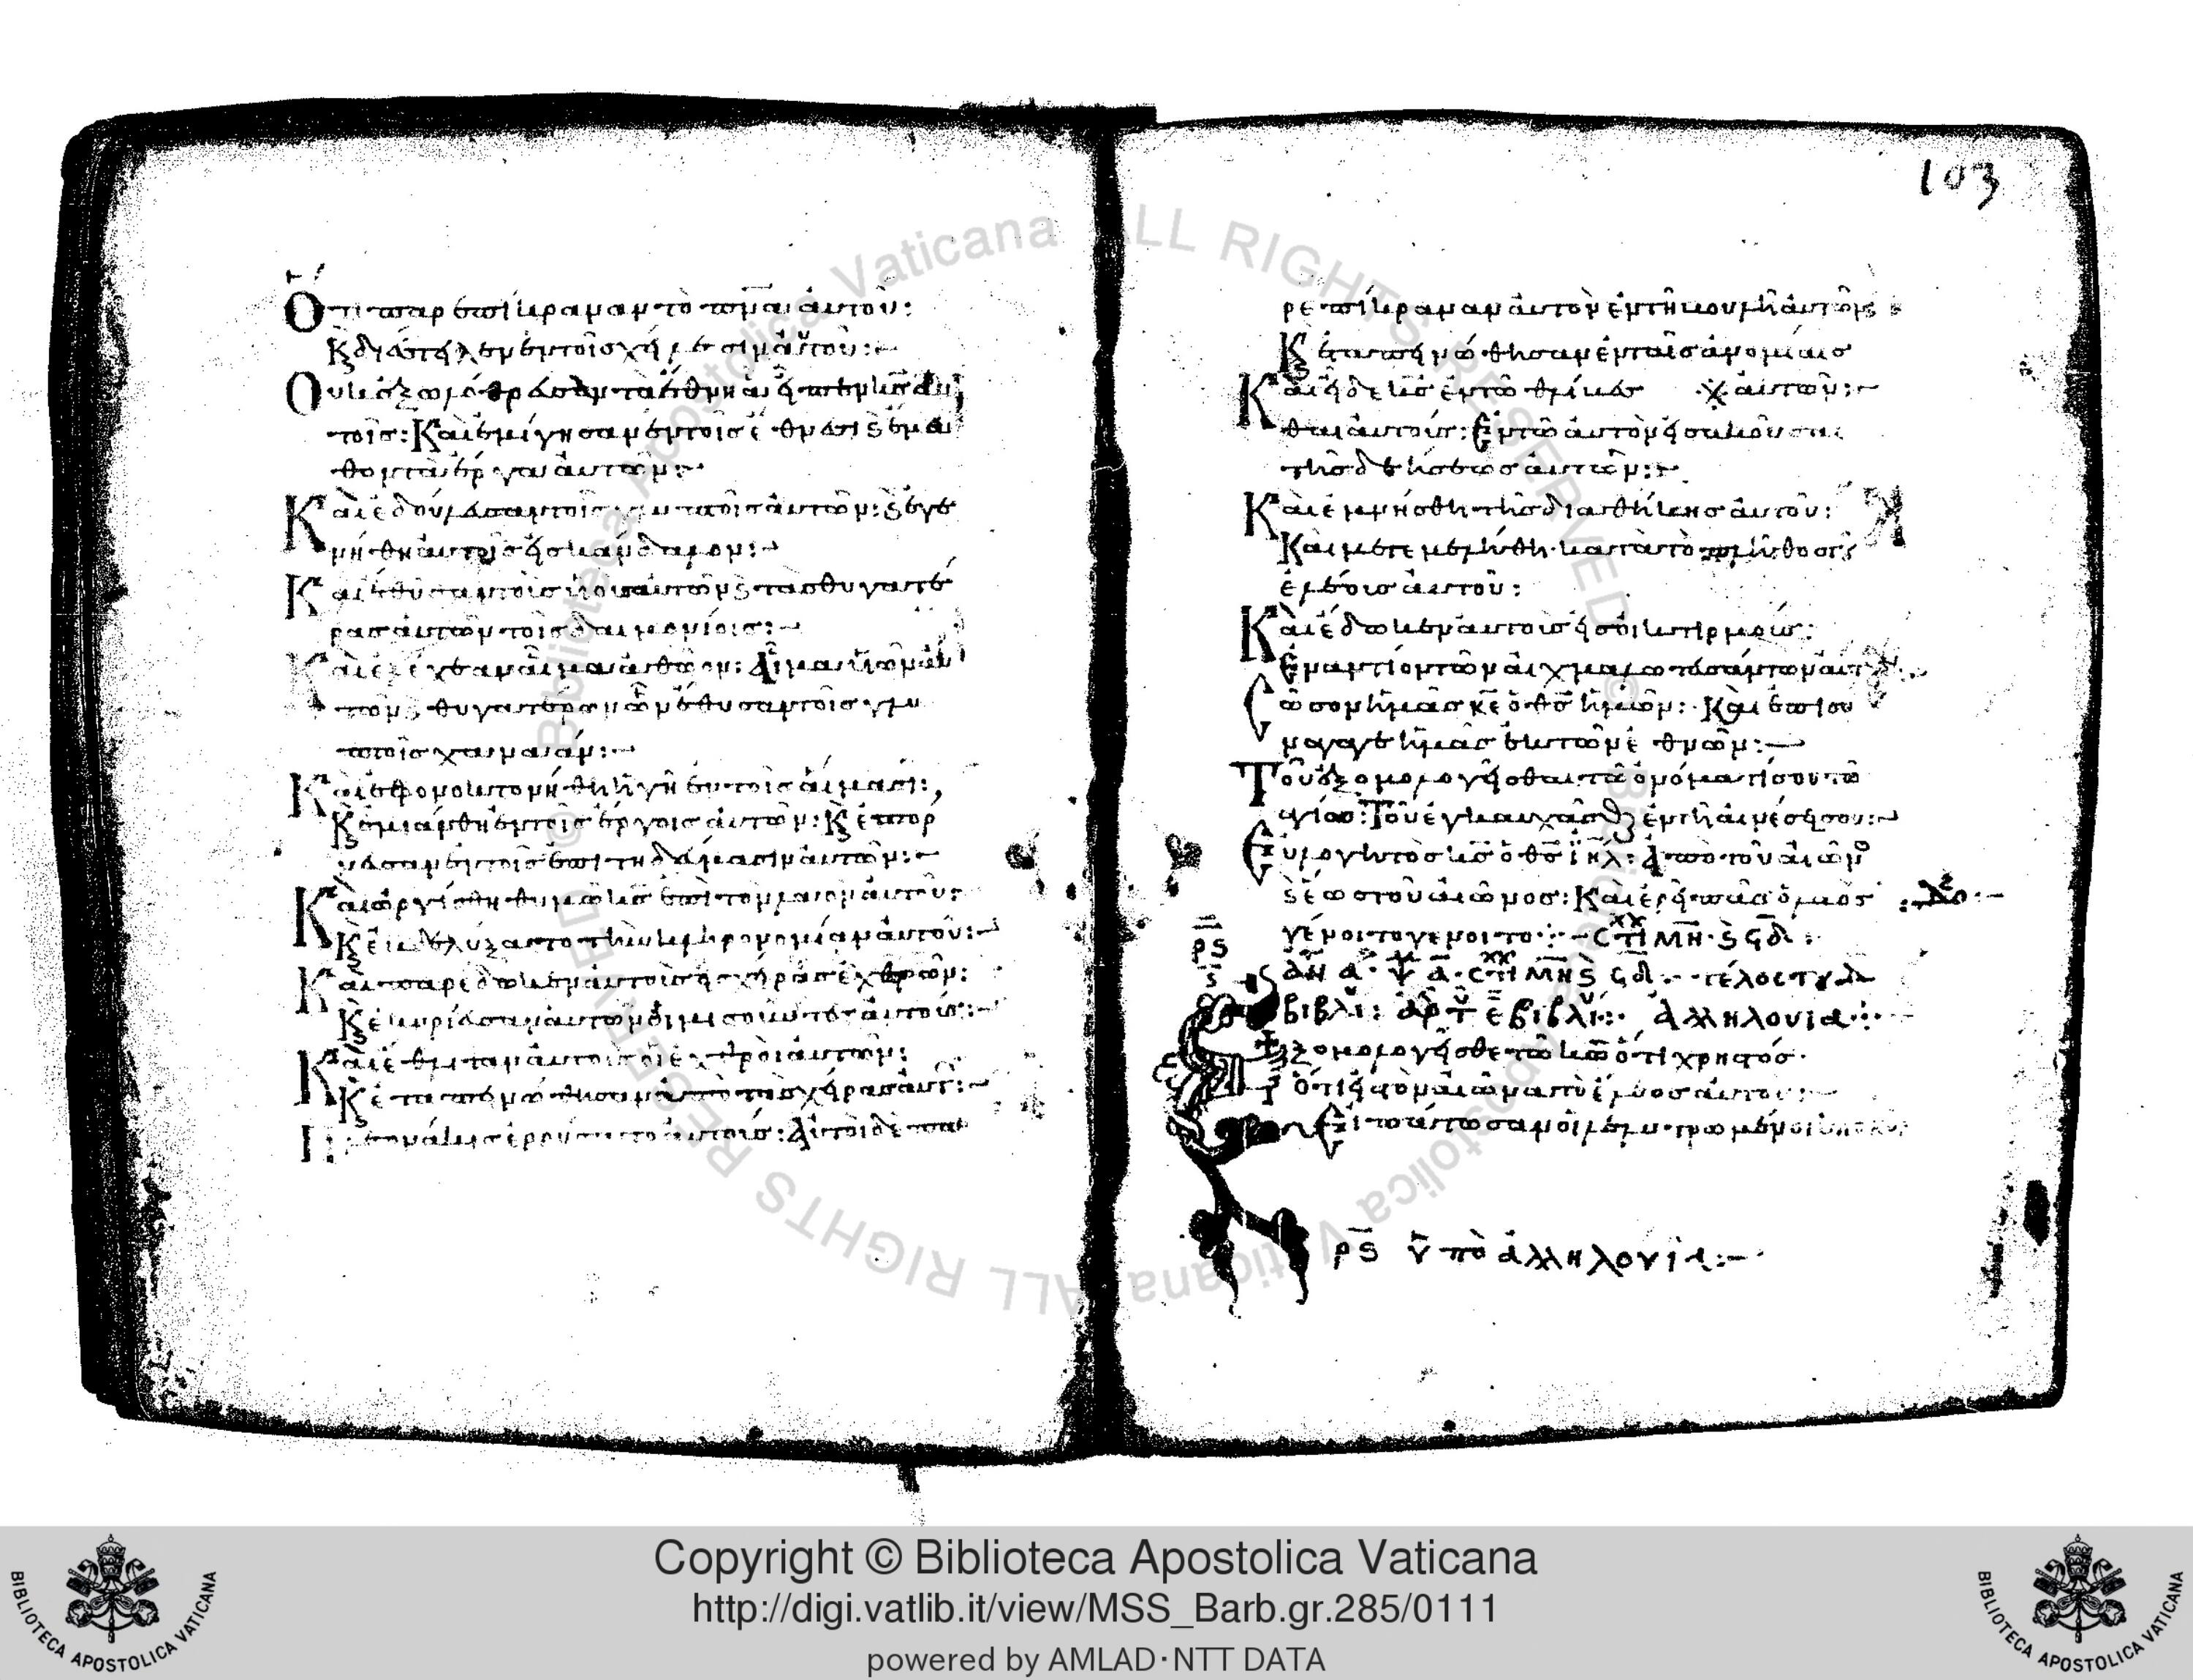 Ὅτι παρεπίκραναν τὸ πνᾶ αὐτοῦ:
Κ διέστειλεν ἐν τοῖς χείλεσιν αὐτοῦ:
Οὐκ ἐξωλόθρευσαν τὰ ἔθνη ἃ εἶπεν κς αὐ
τοῖς: Καὶ ἐμίγησαν ἐν τοῖς ἔθνεσι κ ἔμα
θον τὰ ἔργα αὐτῶν:
Καὶ ἐδούλευσαν τοῖς γλυπτοῖς αὐτῶν: κ ἐγε
νήθη αὐτοῖς εἰς σκάνδαλον:
Καὶ ἔθυσαν τοὺς υἱοὺς αὐτῶν κ τὰς θυγατέ
ρας αὐτῶν τοῖς δαιμονίοις:
Καὶ ἐξέχεαν αἷμα ἀθῶον: Αἷμα υἱῶν αὐ
τῶν κ θυγατέρων ὧν ἔθυσαν τοῖς γλυ
πτοῖς χαναάν:
Καὶ ἐφονοκτονήθη ἡ γῆ ἐν τοῖς αἵμασι:
Κ ἐμιάνθη ἐν τοῖς ἔργοις αὐτῶν: Κ ἐπόρ
νευσαν ἐν τοῖς ἐπιτηδεύμασιν αὐτῶν:
Καὶ ὠργίσθη θυμῷ κς ἐπὶ τὸν λαὸν αὐτοῦ:
Κ ἐβδελύξατο τὴν κληρονομίαν αὐτοῦ:
Καὶ παρέδωκεν αὐτοὺς εἰς χεῖρας ἐχθρῶν:
Κ ἐκυρίευσαν αὐτῶν οἱ μισοῦντες αὐτούς:
Καὶ ἔθλιψαν αὐτοὺς οἱ ἐχθροὶ αὐτῶν:
Κ ἐταπεινώθησαν ὑπὸ τὰς χεῖρας αὐτ:
Πλεονάκις ἐρρύσατο αὐτούς: Αὐτοὶ δὲ πα
103
ρεπίκραναν αὐτὸν ἐν τῇ βουλῇ αὐτῶν
Κ ἐταπεινώθησαν ἐν ταῖς ἀνομίαις
Καὶ εἶδε κς ἐν τῷ θλίβεσ αὐτῶν:
θαι αὐτούς: Ἐν τῷ αὐτὸν εἰσακοῦσαι
τῆς δεήσεως αὐτῶν:
Καὶ ἐμνήσθη τῆς διαθήκης αὐτοῦ:
Καὶ μετεμελήθη κατὰ τὸ πλῆθος τοῦ
ἐλέους αὐτοῦ:
Καὶ ἔδωκεν αὐτοὺς εἰς οἰκτιρμούς:
Ἐναντίον τῶν αἰχμαλωτευσάντων αὐτ
Σῶσον ἡμᾶς κε ὁ θς ἡμῶν: Καὶ ἐπισυ
νάγαγε ἡμᾶς ἐκ τῶν ἐθνῶν:
Τοῦ ἐξομολογεῖσθαι τῷ ὀνόματί σου τῷ
ἁγίῳ: Τοῦ ἐγκαυχᾶσθαι ἐν τῇ αἰνέσει σου:
Εὐλογητὸς κς ὁ θς ιηλ: Ἀπὸ τοῦ αἰῶνος
κ ἕως τοῦ αἰῶνος: Καὶ ἐρεῖ πᾶς ὁ λαός
γένοιτο γένοιτο
τέλος
ἀλληλουια
Ἐξομολογεῖσθε τῷ κω ὅτι χρηστός
ὅτι εἰς τὸν αἰῶνα τὸ ἔλεος αὐτοῦ:
Εἰπάτωσαν οἱ λελυτρωμένοι ὑπὸ κυ
ρς ὑπὸ ἀλληλουια:
Copyright © Biblioteca Apostolica Vaticana
http://digi.vatlib.it/view/MSS_Barb.gr.285/0111
powered by AMLAD·NTT DATA
BIBLIOTECA APOSTOLICA VATICANA
BIBLIOTECA APOSTOLICA VATICANA